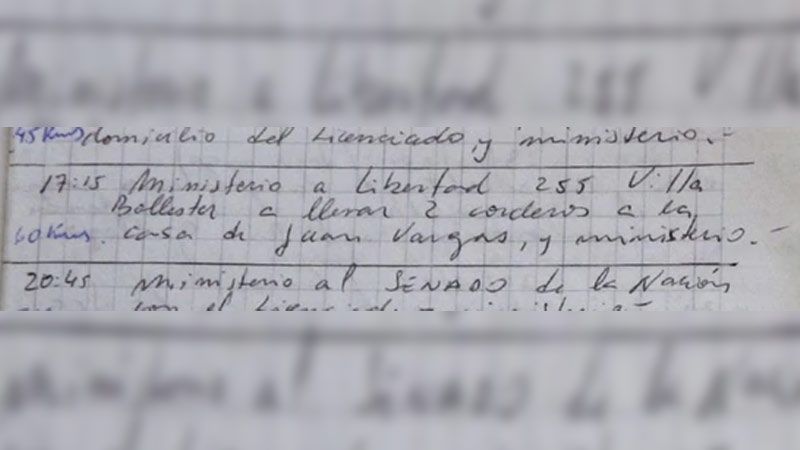 45 Kms domicilio del Licenciado, y ministerio.-
17:15 Ministerio a Libertad 255 Villa
Ballester a llevar 2 corderos a la
60 Kms. casa de Juan Vargas, y ministerio.-
20:45 Ministerio al SENADO de la Nación
con el Licenciado